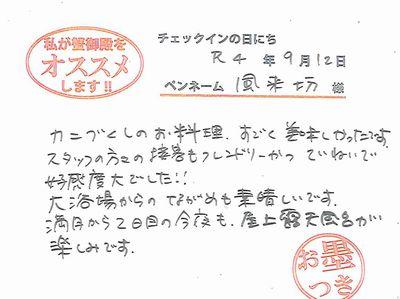 私が蟹御殿を
オススメ
します!!
チェックインの日にち
R4 年 9月12日
ペンネーム 風来坊 様
カニづくしのお料理、すごく美味しかったです。
スタッフの方々の接客もフレンドリーかつ ていねいで
好感度大でした!!
大浴場からのながめも素晴しいです。
満月から2日目の今夜も、屋上露天風呂が
楽しみです。
お墨
つき